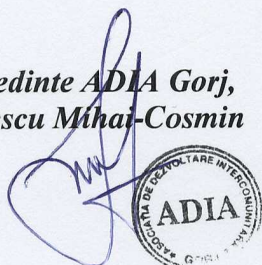 edinte ADIA Gorj,
escu Mihai-Cosmin
ASOCIATIA DE DEZVOLTARE INTERCOMUNITARA
ADIA